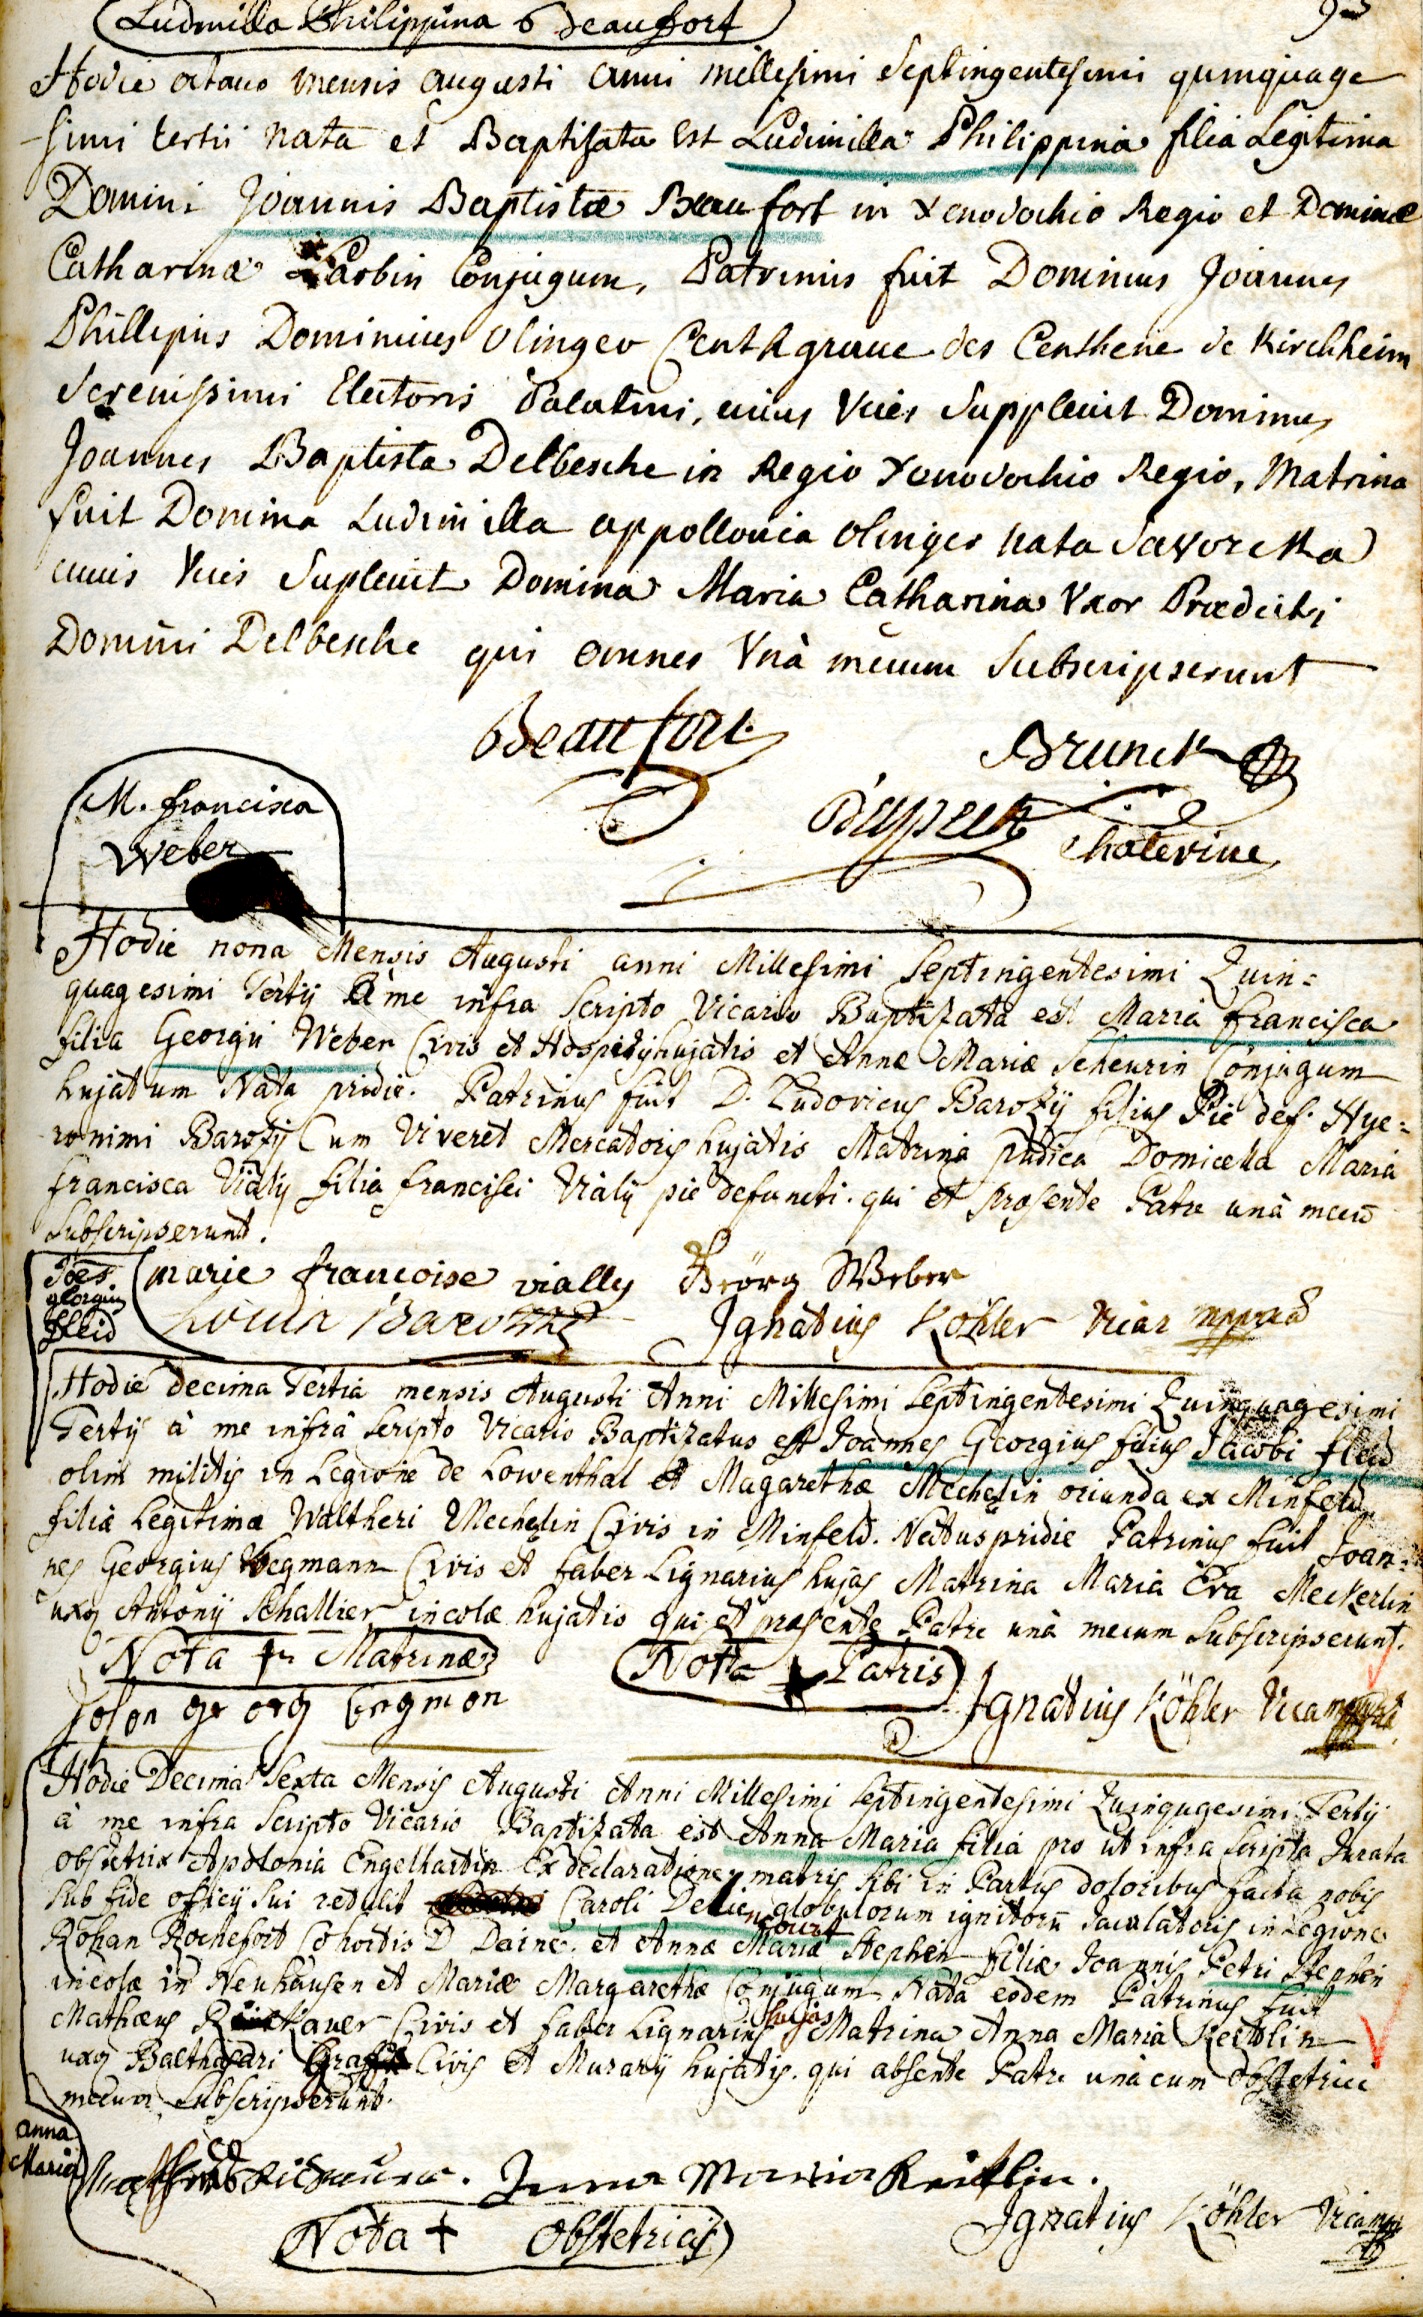 Ludmilla Philippina Beaufort
Hodie octavo mensis augusti anni millesimi Septingentesimi quinquage
-simi tertii nata et Baptisata Est Ludimilla Philippina filia Legitima
Domini Joannis Baptistæ Beaufort in Xenodochio Regio et Dominæ
Catharinæ Barbin Conjugum, Patrinus fuit Dominus Joannes
Phillipus Dominicus Olinger Centhgrave des Centhene de Kirchheim
Serenissimi Electoris Palatini, cuius vices Supplevit Dominus
Joannes Baptista Delbesche in Regio Xenodochio Regio, Matrina
fuit Domina Ludimilla appollonia Olinger nata Savoretta
cuius vices Suplevit Domina Maria Catharina Vxor Prædicti
Domini Delbesche qui omnes Vnà mecum Subscripserunt
Beaufort
Brunck
Dupeck
Chaterine
M. francisca
Weber
Hodie nona Mensis Augusti anni Millesimi Septingentesimi Quin=
quagesimi Tertij à me infra Scripto Vicario Baptizata est Maria francisca
filia Georgii Weber Civis et Hospitij hujatis et Annæ Mariæ Scheurin Conjugum
hujatum Nata pridie. Patrinus fuit D. Ludovicus Barozij filius Pie def. Hye=
ronimi Barozij Cum Viveret Mercatoris hujatis Matrina pudica Domicella Maria
francisca Vialij filia francisci Vialij pie defuncti. qui et præsente Patre unà mecū
Subscripserunt.
Joēs.
georgius
fleid
marie francoise vially Geörg Weber
Louis Barozzi
Ignatius Köhler Vicar mppria
Hodie decima Tertia mensis Augusti Anni Millesimi Septingentesimi Quinquagesimi
Tertij à me infrà Scripto Vicario Baptizatus est Joannes Georgius filius Jacobi fleid
olim militis in Legione de Lowenthal et Magarethæ Mechelin oriunda ex Minfeld
filiâ Legitimâ Waltheri Mechelin Civis in Minfeld. Natus pridie Patrinus fuit Joan=
nes Georgius Wegmann Civis et faber Lignarius hujas Matrina Maria Eva Meckerlin
uxor Antonij Schallier incolæ hujatis qui et præsente Patre unà mecum Subscripserunt.
Nota + Matrinæ
Nota + Patris
Ignatius Köhler Vica
Hodie Decima Sexta Mensis Augusti Anni Millesimi Septingentesimi Quinqugesimi Tertij
à me infra Scripto Vicario Baptizata est Anna Maria filia pro ut infra Scripta Jurata
obstetrix Apolonia Engelhartin Ex declaratione matris sibi in Partus doloribus facta nobis
Sub fide officij Sui retulit Caroli Delien globulorum ignitorū Jaculatoris in Legione
court
Rohan Rochefort Cohortis D Daine. et Annæ Mariæ Stephen filiæ Joannis Petri Stephen
incolæ in Neuhausen et Mariæ Margarethæ Conjugum Nata eodem Patrinus fuit
hujas
Mathæus Civis et faber Lignarius Matrina Anna Maria Kecklin
uxor Balthasari Civis et Murarij hujatis. qui absente Patre unà cum obstetrice
mecum Subscripserunt.
anna
Maria
Anna Maria
Ignatius Köhler Vica
Nota + Obstetricis